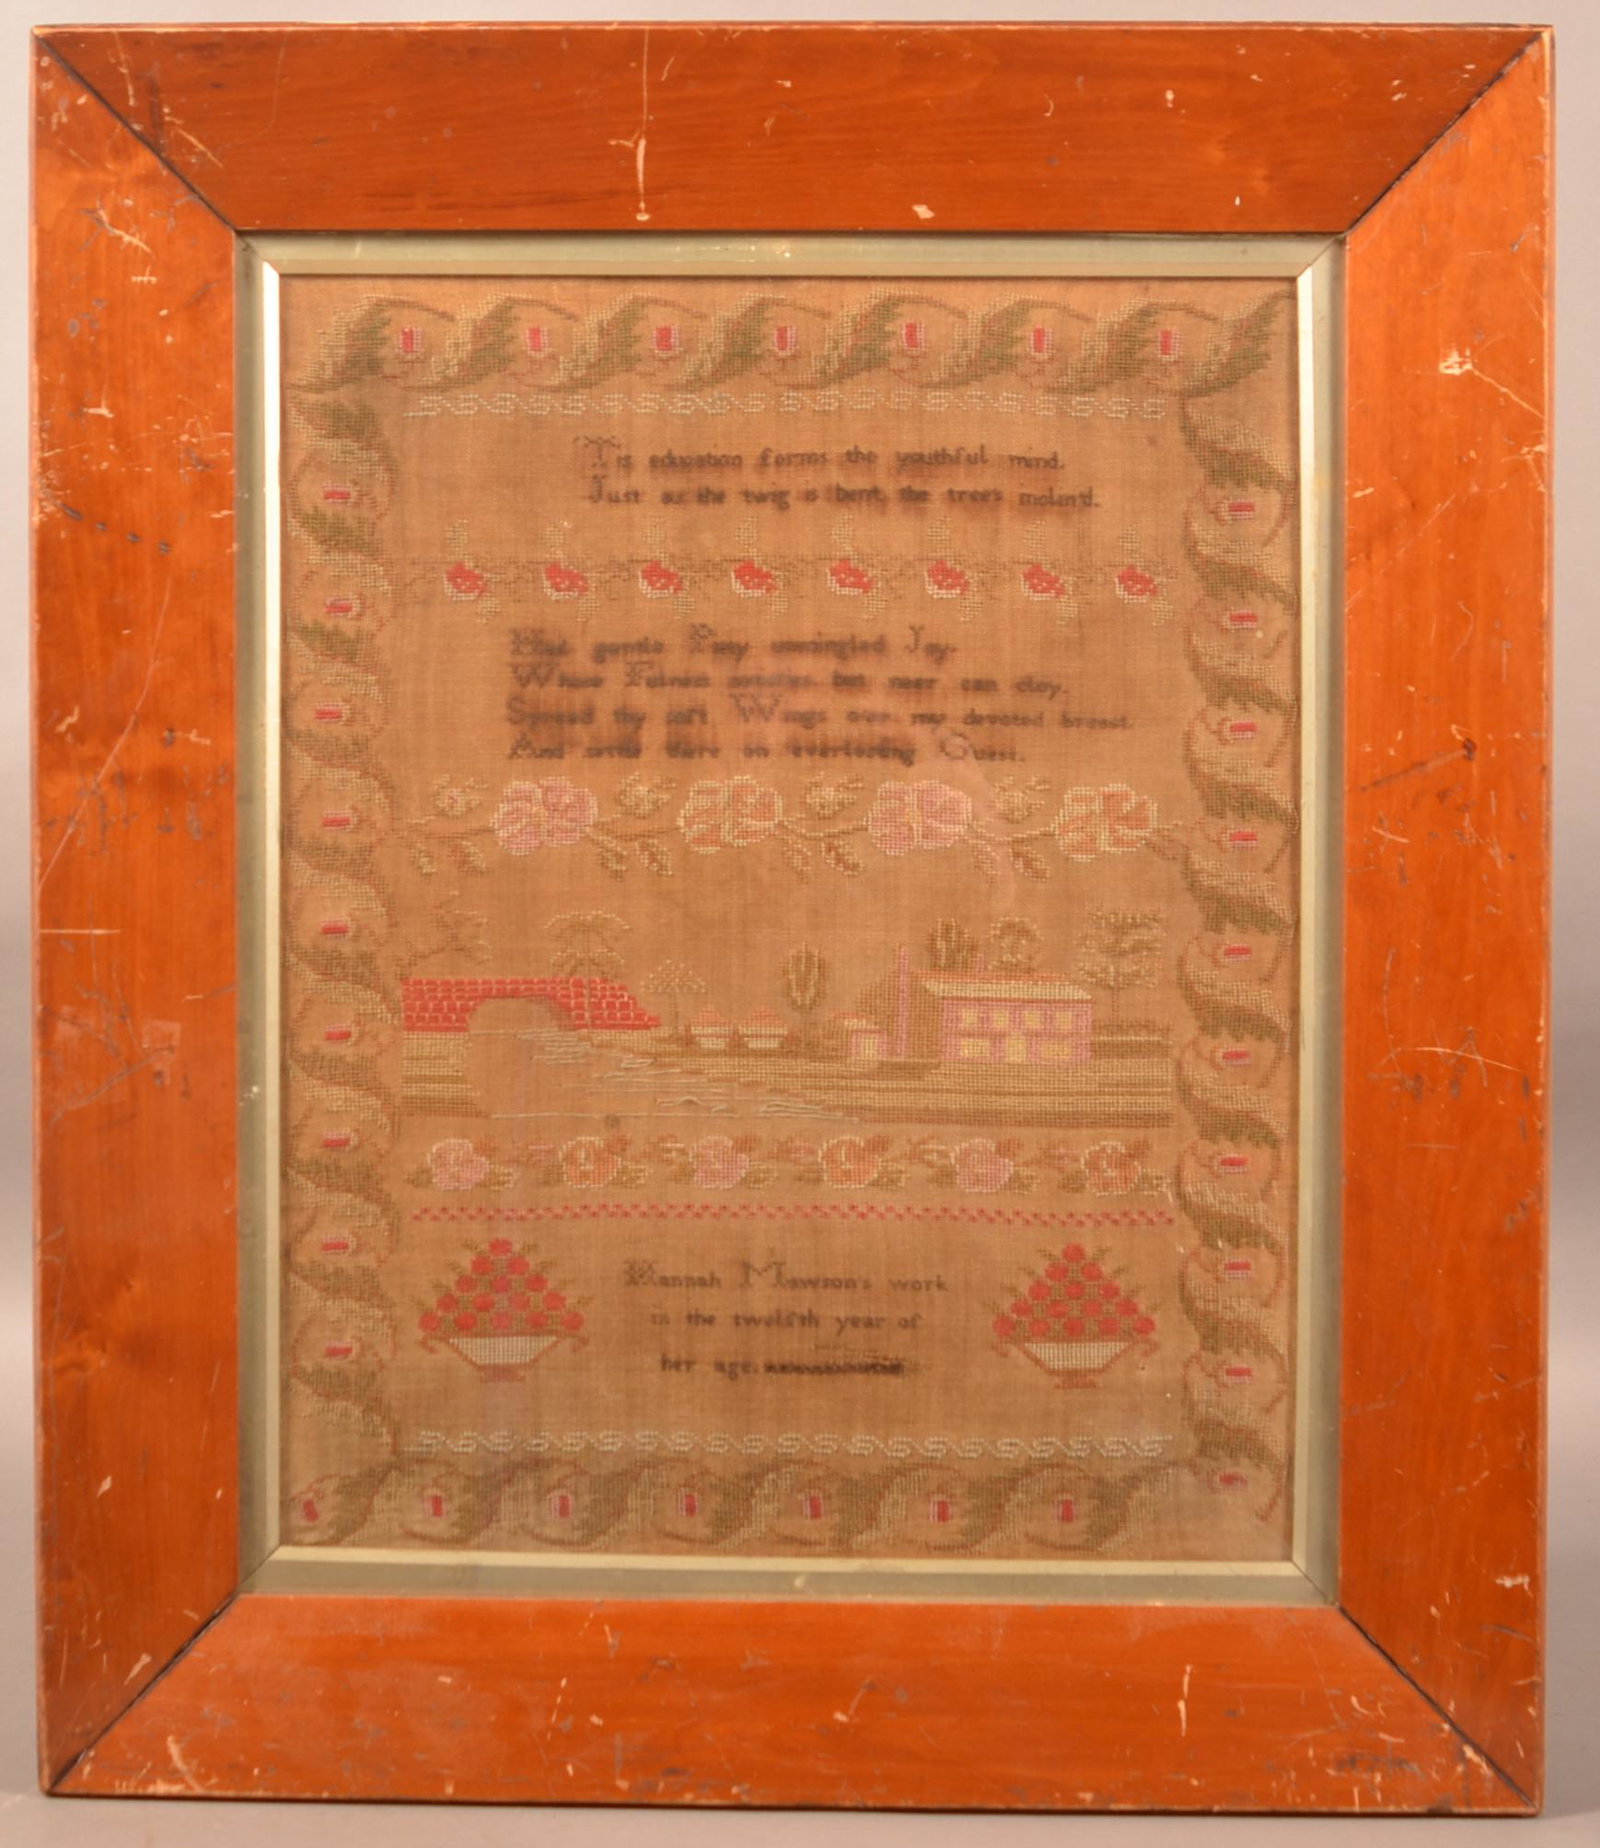 Tis education forms the youthful mind.
Just as the twig is bent, the trees
gentle Piety unmingled Joy.
Whose Fulness satisfies but neer can cloy.
Spread thy soft Wings over my devoted breast.
And settle there an everlasting Guest.
Hannah Mawson's work
in the twelfth year of
her age